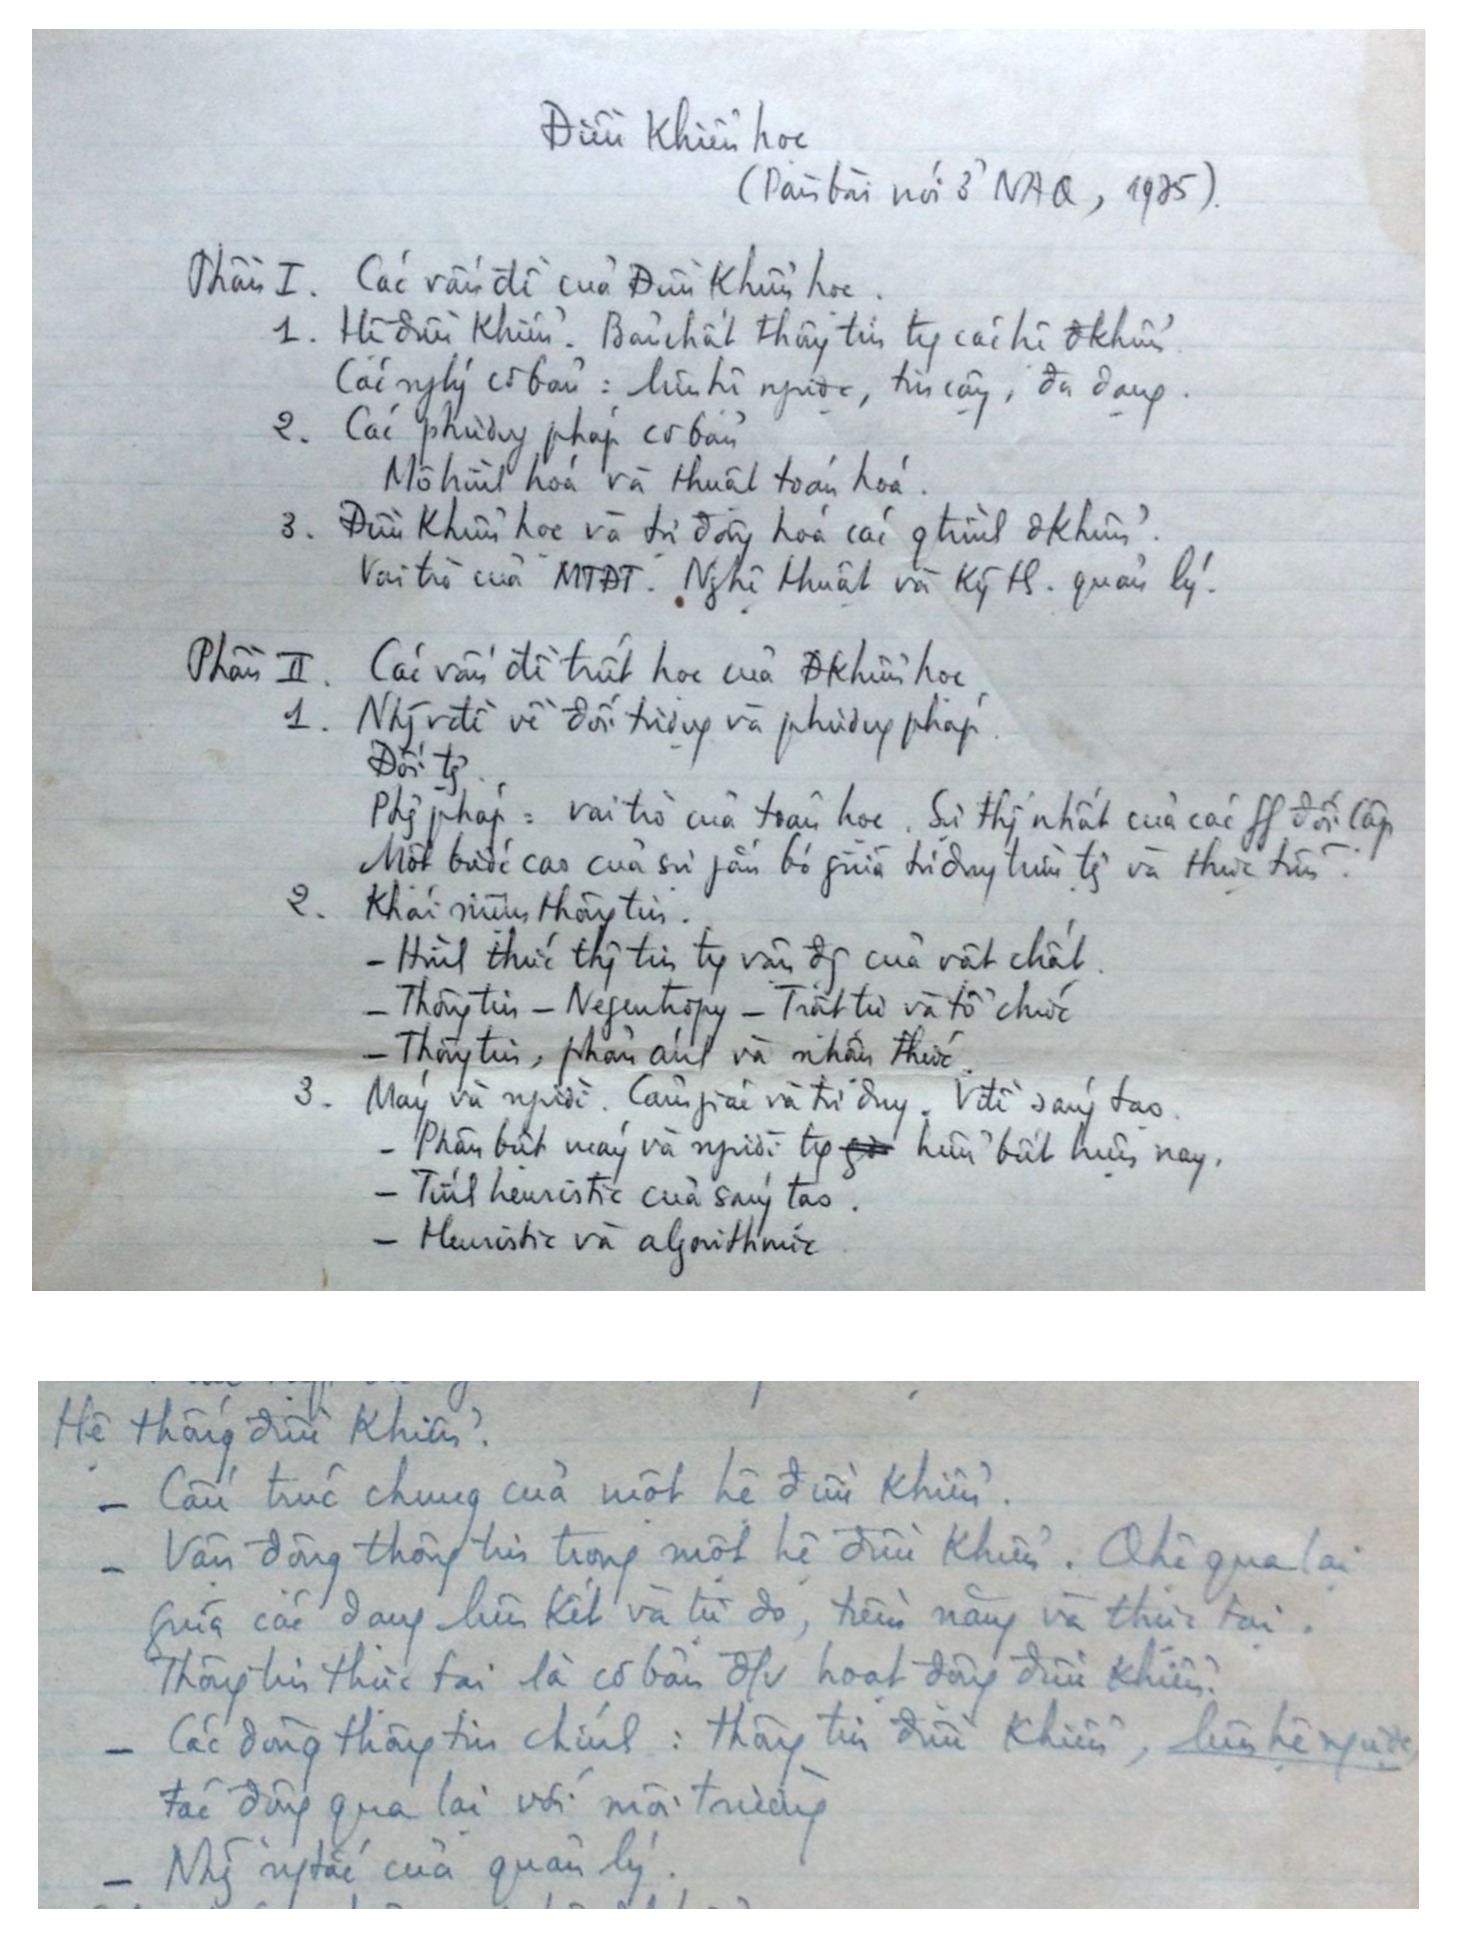 Điều Khiển học
(Dàn bài nói ở NAQ, 1975).
Phần I. Các vấn đề của Điều Khiển học.
1. Hệ điều Khiển. Bản chất thông tin tg các hệ đkhiển.
Các nglý cơ bản: liên hệ ngược, tin cậy, đa dạng.
2. Các phương pháp cơ bản
Mô hình hoá và thuật toán hoá.
3. Điều Khiển học và tự động hoá các qtrình đkhiển.
Vai trò của MTĐT. Nghệ thuật và Kỹ th. quản lý.
Phần II. Các vấn đề triết học của Đkhiển học
1. Nhg vđề về đối tượng và phương pháp.
Đối tg.
Phg pháp: vai trò của toán học. Sự thg nhất của các ff đối lập
Một bước cao của sự gắn bó giữa tư duy trừu tg và thực tiễn.
2. Khái niệm thông tin.
- Hình thức thg tin tg vận đg của vật chất.
- Thông tin - Negentropy - Trật tự và tổ chức
- Thông tin, phản ánh và nhận thức.
3. Máy và người. Cảm giác và tư duy. Vđề sáng tạo.
- Phân biệt máy và người tg hiểu biết hiện nay.
- Tính heuristic của sáng tạo.
- Heuristic và algorithmic
Hệ thống điều Khiển.
- Cấu trúc chung của một hệ điều Khiển.
- Vận động thông tin trong một hệ điều Khiển. Qhệ qua lại
giữa các dạng liên Kết và tự do, tiềm năng và thực tại.
Thông tin thực tại là cơ bản đ/v hoạt động điều Khiển.
- Các dòng thông tin chính: thông tin điều Khiển, liên hệ ngược,
tác động qua lại với môi trường
- Nhg ngtắc của quản lý.